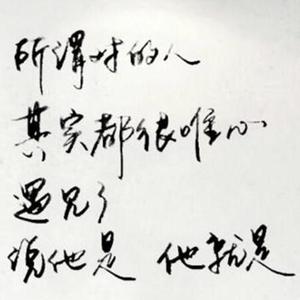 所謂对的人
其实都很唯心
遇见了
说他是 他就是